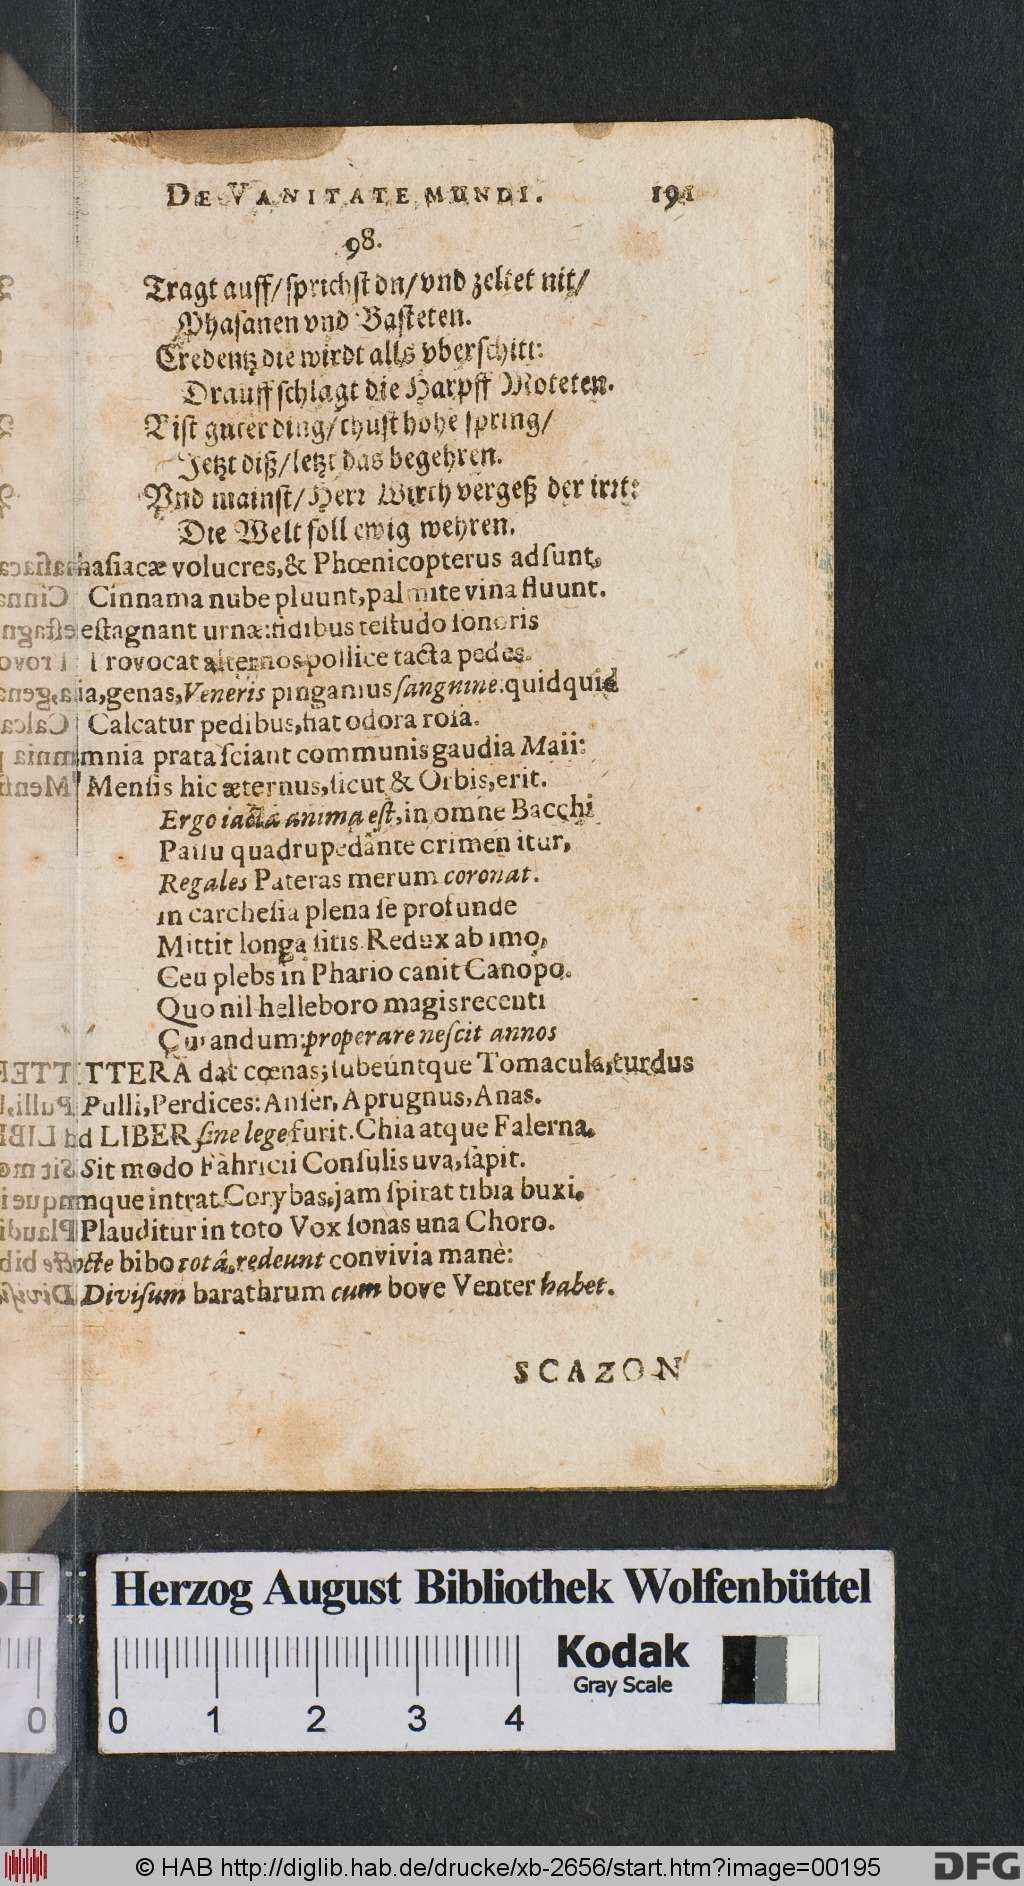 DE VANITATE MUNDI. 191
98.
Tragt auff/ sprichst du/ vnd zeltet nit/
Phasanen vnd Basteten.
Credentz die wirdt alls vberschitt:
Drauff schlagt die Harpff Moteten.
Bist guter ding/ thust hohe spring/
Jetzt diß/ letzt das begehren.
Vnd mainst/ Herr Wirth vergeß der irrt:
Die Welt soll ewig wehren.
hasiacæ volucres, & Phœnicopterus adsunt,
Cinnama nube pluunt, palmite vina fluunt.
estagnant urnæ: fidibus testudo sonoris
Provocat alternos pollice tacta pedes.
ia, genas, Veneris pingamus sanguine. quidquid
Calcatur pedibus, fiat odora rosa.
mnia prata sciant communis gaudia Maii:
Mensis hic æternus, sicut & Orbis, erit.
Ergo iacta anima est, in omne Bacchi
Passu quadrupedante crimen itur,
Regales Pateras merum coronat.
in carchesia plena se profunde
Mittit longa sitis. Redux ab imo,
Ceu plebs in Phario canit Canopo.
Quo nil helleboro magis recenti
Curandum: properare nescit annos
TTERA dat cœnas; subeúntque Tomacula, turdus
Pulli, Perdices: Anser, Aprugnus, Anas.
d LIBER sine lege furit. Chia atque Falerna.
Sit modo Fabricii Consulis uva, sapit.
mque intrat Corybas, jam spirat tibia buxi.
Plauditur in toto Vox sonas una Choro.
octe bibo totâ, redeunt convivia manè:
Divisum barathrum cum bove Venter habet.
SCAZON
Herzog August Bibliothek Wolfenbüttel
Kodak
Gray Scale
0 0 1 2 3 4
© HAB http://diglib.hab.de/drucke/xb-2656/start.htm?image=00195 DFG